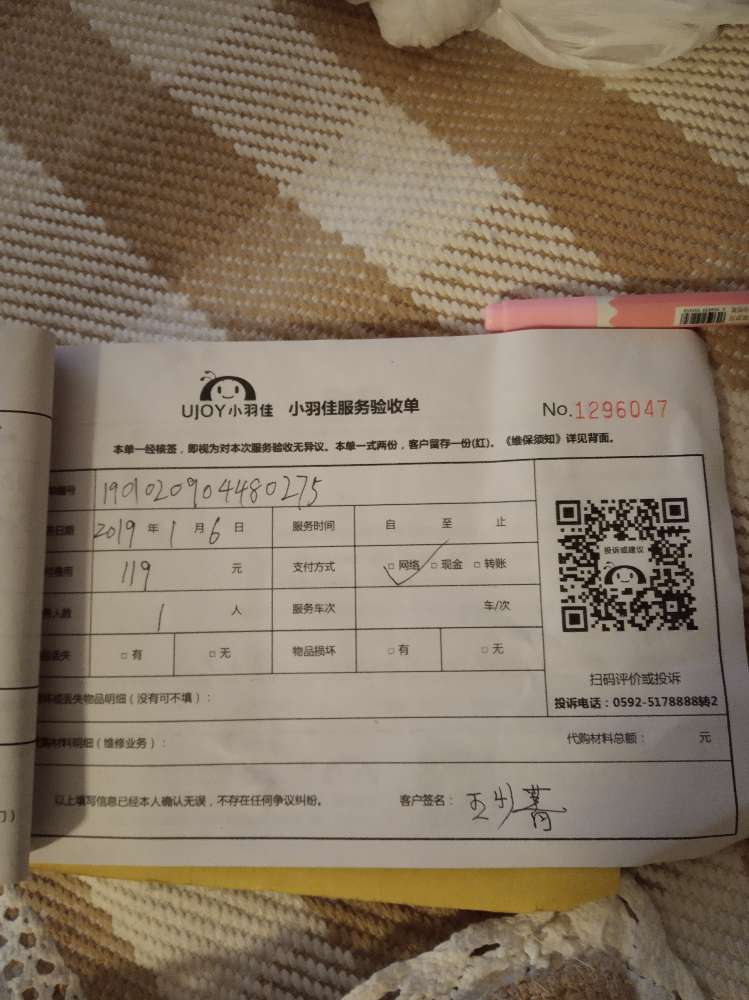 UJOY小羽佳 小羽佳服务验收单 No.1296047
本单一经核签，即视为对本次服务验收无异议。本单一式两份，客户留存一份(红)。《维保须知》详见背面。
编号 1901020904480275
日期 2019年1月6日 服务时间 自 至 止
费用 119 元 支付方式 □网络 □现金 □转账
人数 1 人 服务车次 车/次
丢失 □有 □无 物品损坏 □有 □无
投诉或建议
扫码评价或投诉
投诉电话：0592-5178888转2
坏或丢失物品明细（没有可不填）：
购材料明细（维修业务）： 代购材料总额： 元
以上填写信息已经本人确认无误，不存在任何争议纠纷。 客户签名：